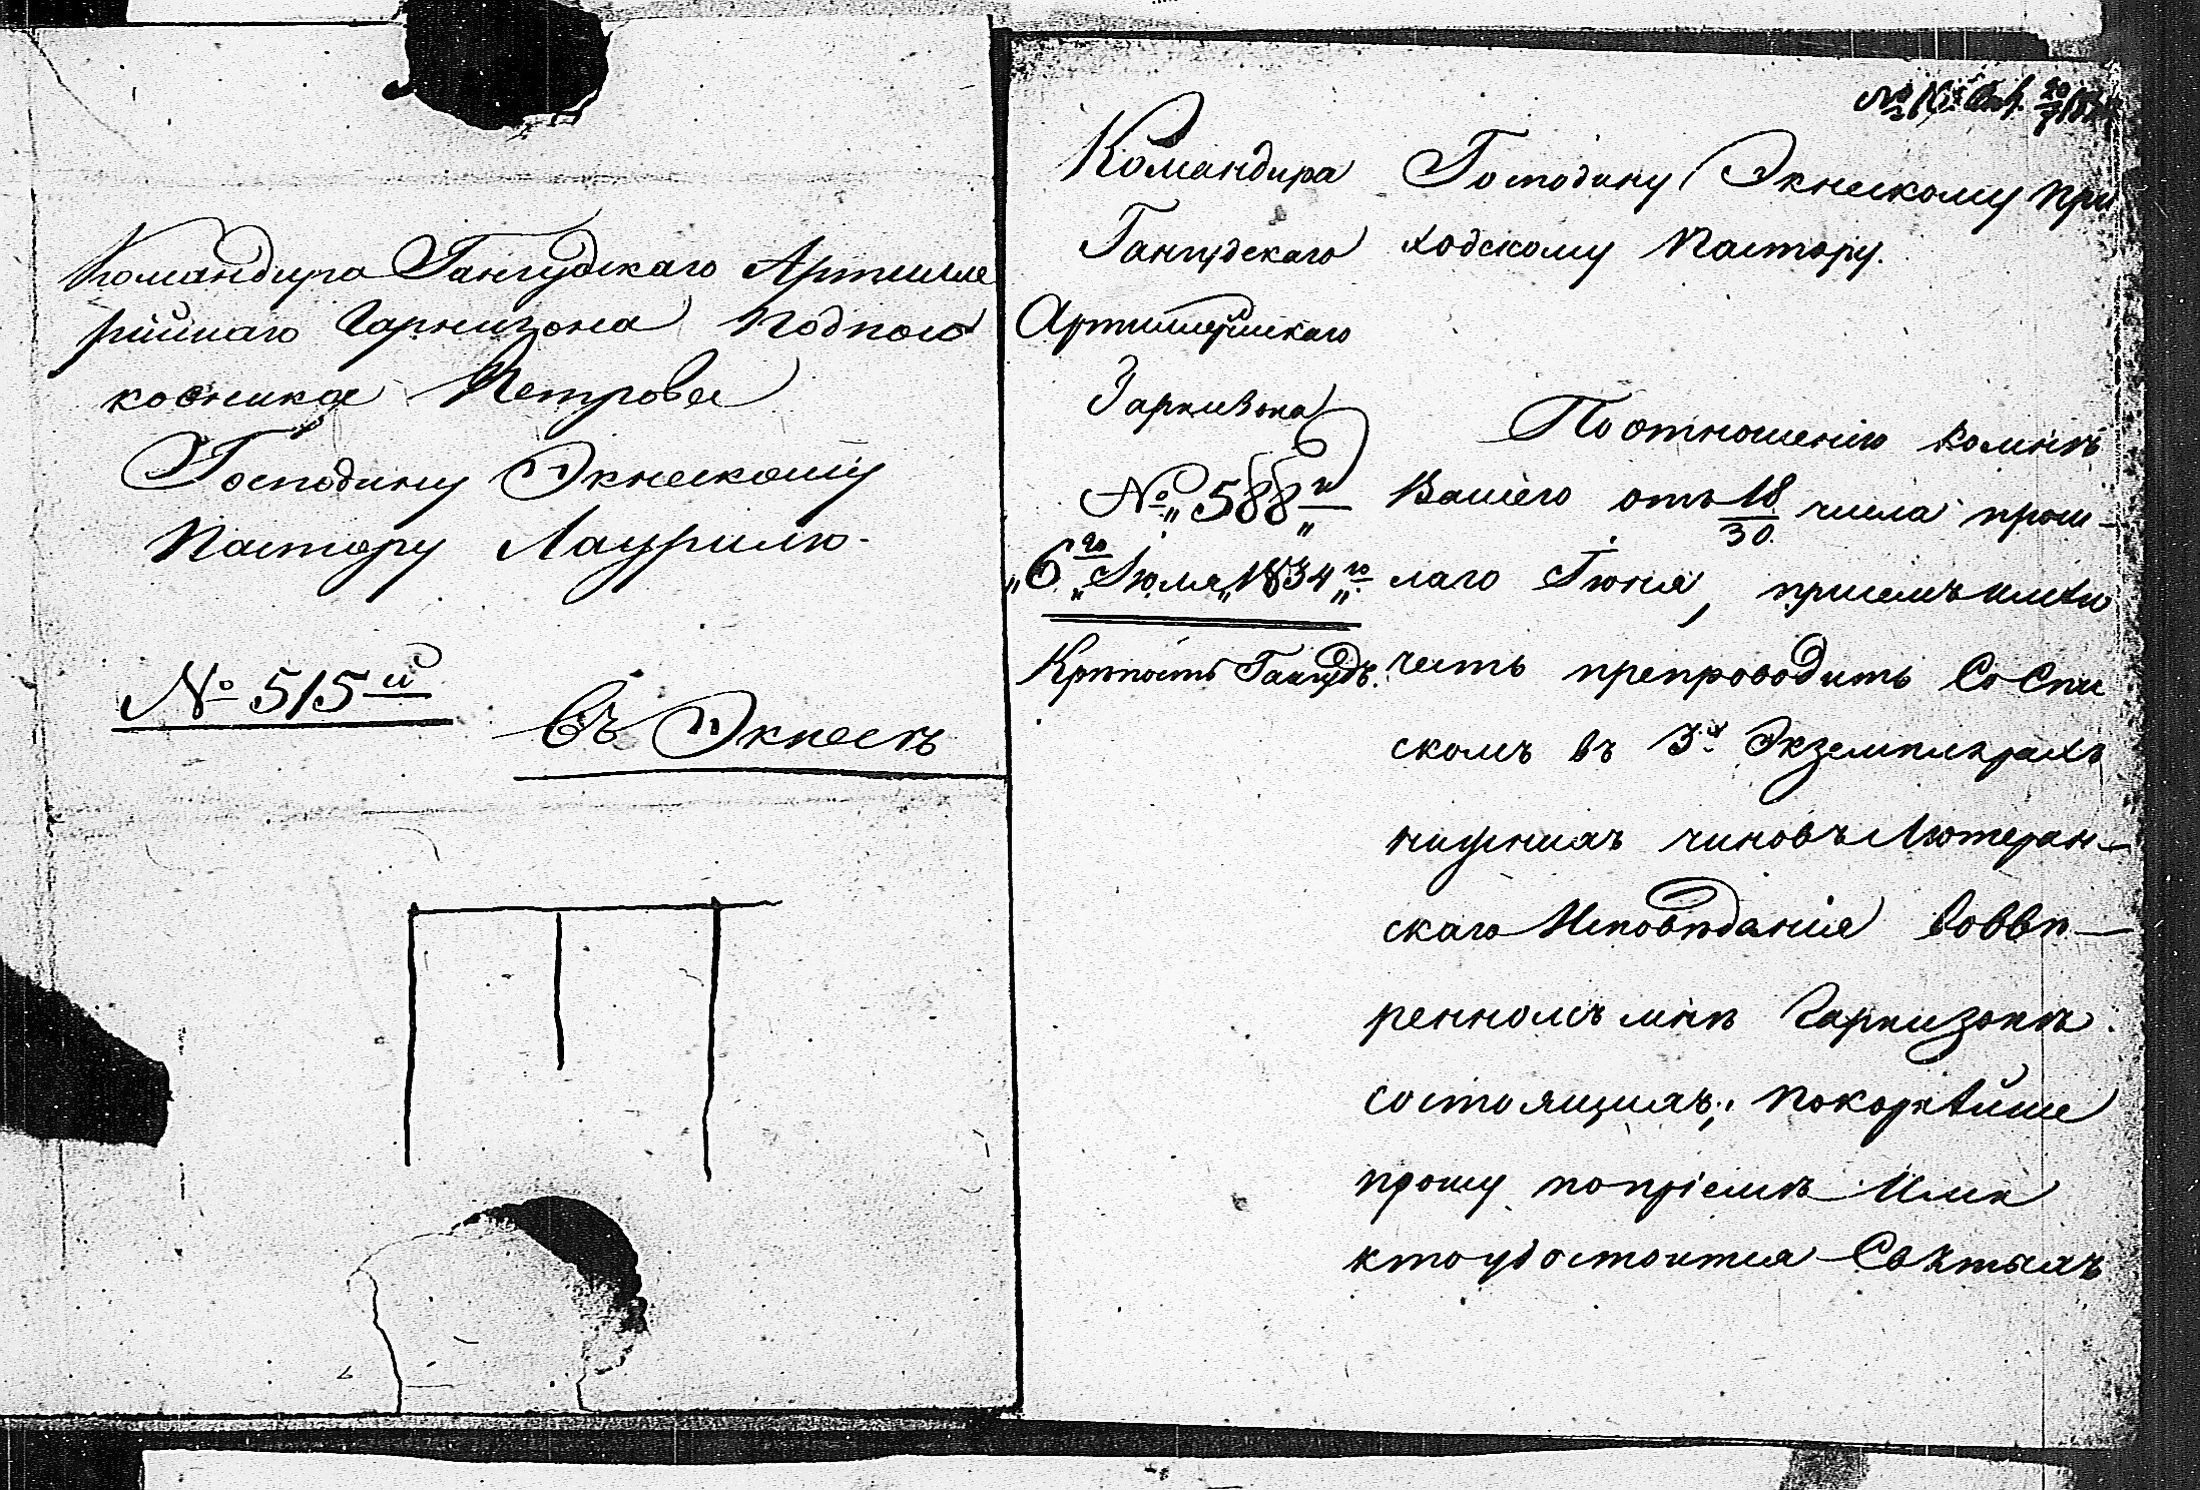 Командира Гангудскаго Артилле
рійскаго Гарнизона Подпол
ковника Петрова
Господину Экнескому
Пастору Лаурилю.
№ 515й
въ Экнесъ
№
Командира
Гангудскаго
Артиллерійскаго
Гарнизона
№ 588й
„6го Іюля 1834го
Крѣпость Гангудъ.
Господину Экнескому при
ходскому Пастору.
По отношенію комнѣ
Вашего отъ 18/30 числа прош-
лаго Іюня, при семъ имѣю
честь препроводить Со Спи
скомъ въ 3х Экземплярахъ
нижнихъ чиновъ Лютеран-
скаго Исповѣданія Воввѣ-
ренномъ мнѣ Гарнизонѣ
состоящихъ; покорнѣйше
прошу попріемѣ
кто удостоится Святыхъ